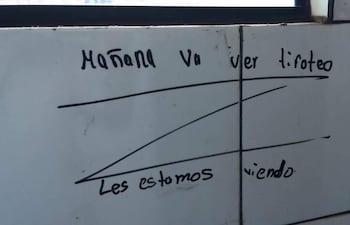 Mañana va ver tiroteo
Les estamos viendo